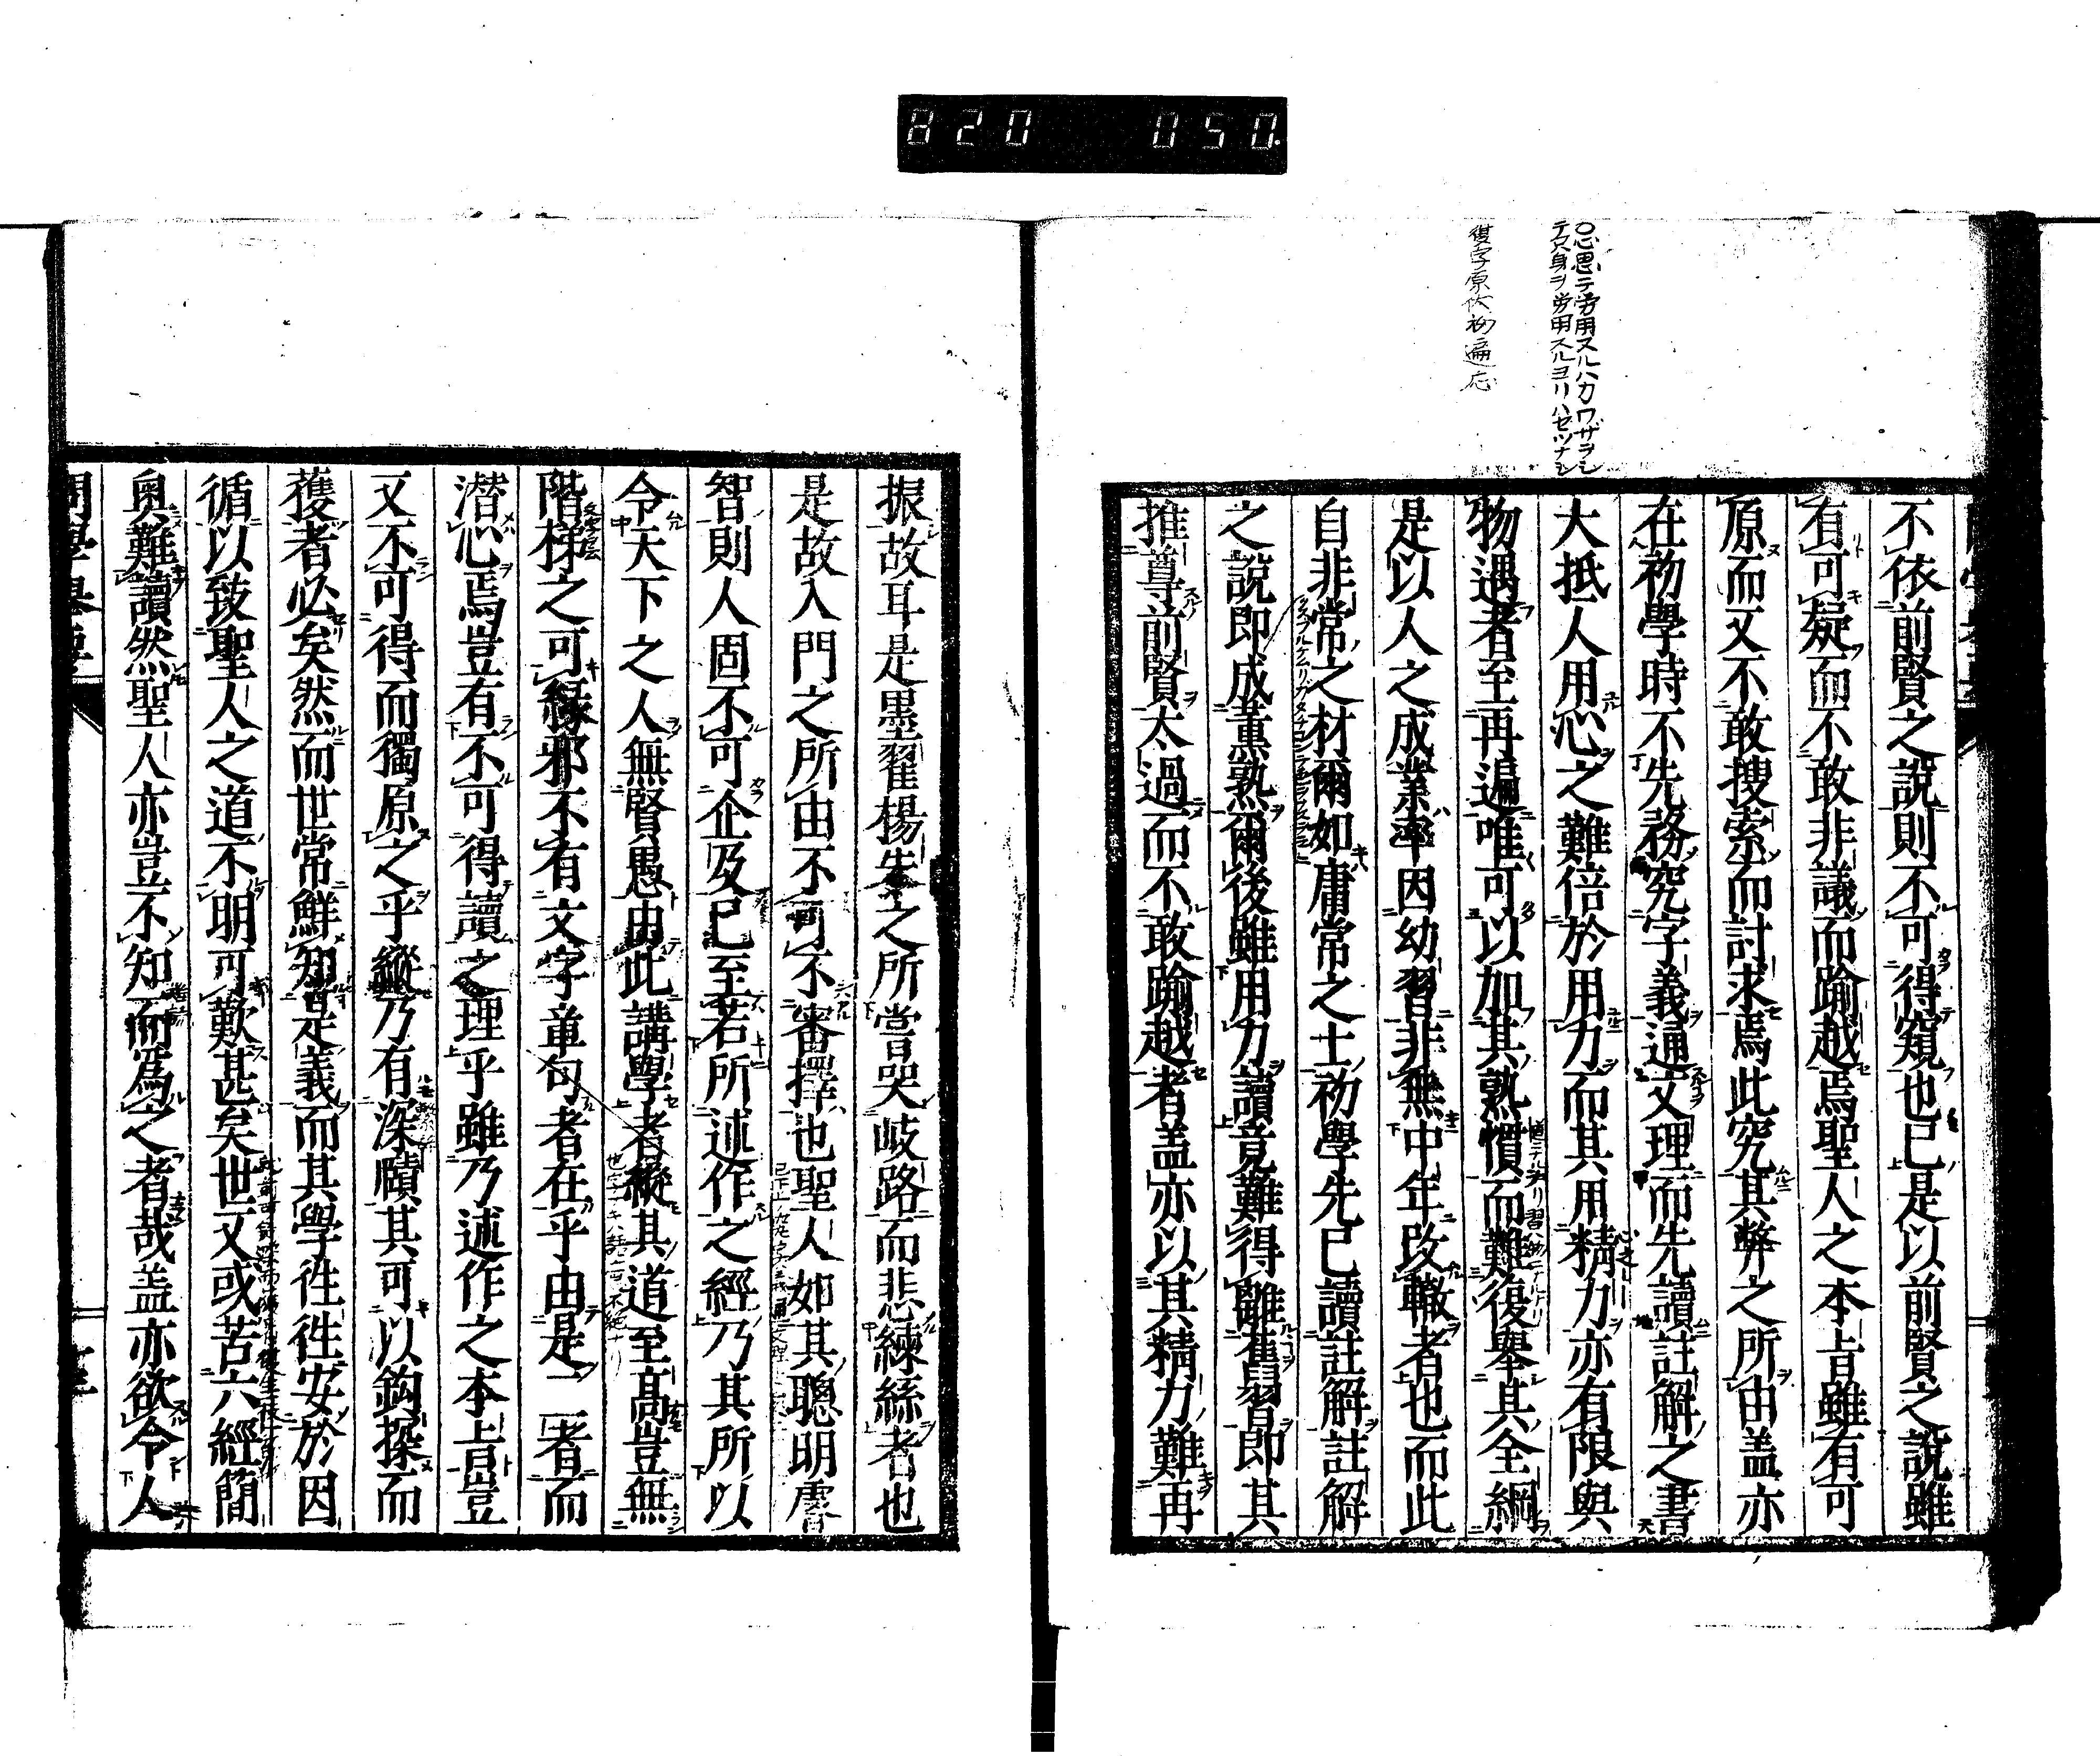 820 050.
〇心思ヲ労用スルハカワザヲシ
テ只身ヲ労用スルヨリハセツナシ
不依前賢之說則不可得窺也已是以前賢之說雖
有可疑而不敢非議而踰越焉聖人之本旨雖有可
原而又不敢搜索而討求焉此究其弊之所由盖亦
在初學時不先務究字義通文理而先讀註解之書
大抵人用心之難倍於用力而其用精力亦有限與
物遇者至再遍唯可以加其熟慣而難後舉其全綱
是以人之成業率因幼習非無中年改轍者也而此
自非常之材爾如庸常之士初學先已讀註解註解
之說即成薫熟爾後雖用力讀竟難得離舊習即其
推尊前賢太過而不敢踰越者盖亦以其精力難再
振故耳是墨翟楊朱之所當哭岐路而悲練絲者也
是故入門之所由不可不審擇也聖人如其聰明睿
智則人固不可企及已至若所述作之經乃其所以
令天下之人無賢愚由此講學者縱其道至高豈無
階梯之可緣邪不有文字章句者在乎由是二者而
潜心焉豈有不可得讀之理乎雖乃述作之本旨豈
又不可得而獨原之乎縱乃有深賾其可以鈎探而
獲者必矣然而世常鮮知是義而其學徃徃安於因
循以致聖人之道不明可歎甚矣世又或苦六經簡
奥難讀然聖人亦豈不知而爲之者哉盖亦欲令人